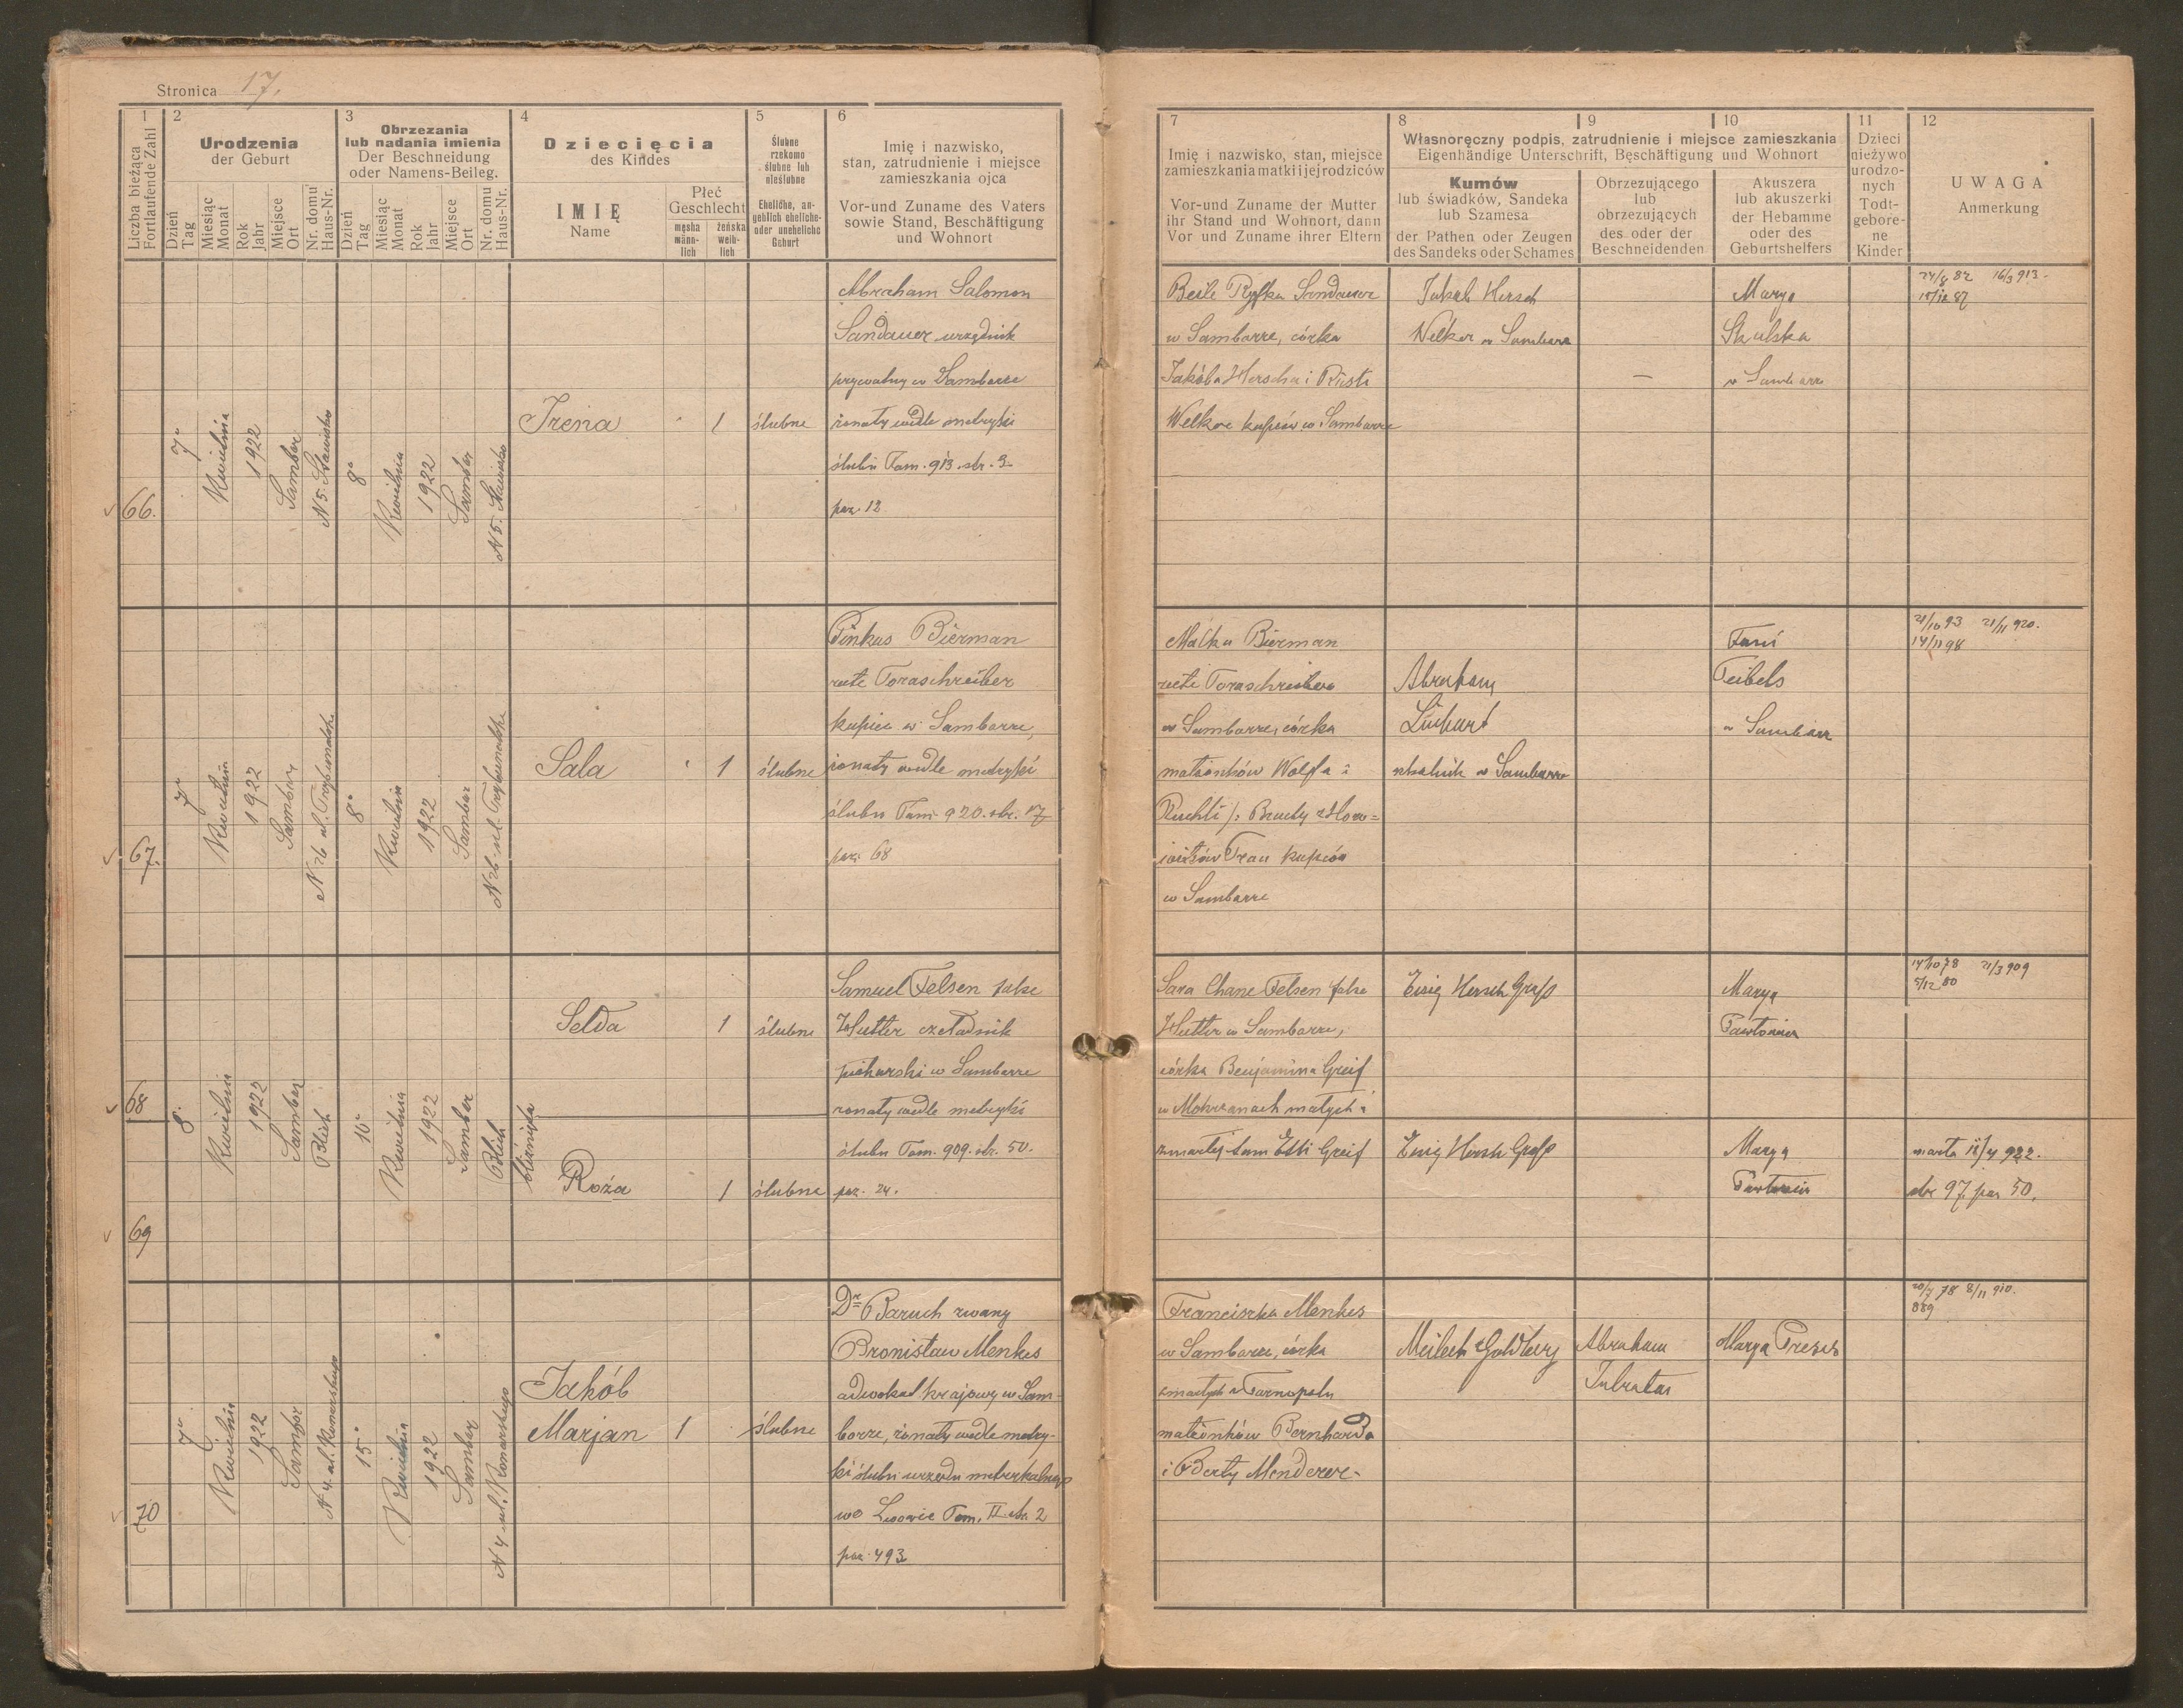 Stronica 17.
1
Liczba bieżąca
Fortlaufende Zahl
2
Urodzenia
der Geburt
Dzień
Tag
Miesiąc
Monat
Rok
Jahr
Miejsce
Ort
Nr. domu
Haus-Nr.
3
Obrzezania
lub nadania imienia
Der Beschneidung
oder Namens-Beileg.
Dzień
Tag
Miesiąc
Monat
Rok
Jahr
Miejsce
Ort
Nr. domu
Haus-Nr.
4
Dziecięcia
des Kindes
IMIĘ
Name
Płeć
Geschlecht
męska
männ-
lich
żeńska
weib-
lich
5
Ślubne
rzekomo
ślubne lub
nieślubne
Eheliche, an-
geblich eheliche-
oder uneheliche
Geburt
6
Imię i nazwisko,
stan, zatrudnienie i miejsce
zamieszkania ojca
Vor-und Zuname des Vaters
sowie Stand, Beschäftigung
und Wohnort
7
Imię i nazwisko, stan, miejsce
zamieszkania matki i jej rodziców
Vor-und Zuname der Mutter
ihr Stand und Wohnort, dann
Vor und Zuname ihrer Eltern
8
9
10
Własnoręczny podpis, zatrudnienie i miejsce zamieszkania
Eigenhändige Unterschrift, Bęschäftigung und Wohnort
Kumów
lub świadków, Sandeka
lub Szamesa
der Pathen oder Zeugen
des Sandeks oder Schames
Obrzezującego
lub
obrzezujących
des oder der
Beschneidenden
Akuszera
lub akuszerki
der Hebamme
oder des
Geburtshelfers
11
Dzieci
nieżywo
urodzo-
nych
Todt-
gebore-
ne
Kinder
12
UWAGA
Anmerkung
66.
7
Kwietnia
1922
Sambor
N 5. Stawisko
8
Kwietnia
1922
Sambor
N 5. Stawisko
Irena
1
ślubne
Abraham Salomon
Sandauer urzędnik
prywatny w Samborze
żonaty wedle metryki
ślubu Tom. 913. str. 3
poz. 12
Beile Ryfka Sandauer
w Samborze, córka
Jakóba Herscha i Rüsti
Welker kupców w Samborze
Jakób Hersch
Welker w Samborze
—
Marya
Skulska
w Samborze
24/8 82 16/3 913.
15/12 87
67.
7
Kwietnia
1922
Sambor
N 26 ul. Trybunalska
8
Kwietnia
1922
Sambor
N 26 ul. Trybunalska
Sala
1
ślubne
Pinkus Bierman
recte Toraschreiber
kupiec w Samborze,
żonaty wedle metryki
ślubu Tom. 920. str. 17
poz. 68
Malka Bierman
recte Toraschreiber
w Samborze, córka
małżonków Wolfa i
w Samborze
Abraham
w Samborze
Teibels
w Samborze
21/10 93 21/11 920.
14/11 98
68
8
Kwietnia
1922
Sambor
Blich
10
Kwietnia
1922
Sambor
Blich
bliźnięta
Selda
1
ślubne
Samuel Felsen false
Hutter czeladnik
piekarski w Samborze
żonaty wedle metryki
ślubu Tom. 909. str. 50.
poz. 24.
Sara Chane Felsen false
Hutter w Samborze,
córka Benjamina Greif
w Mokrzanach małych i
zmarłej tam Etti Greif
Eisig Hersch Graf
Marya
14/10 78 21/3 909
5/12 80
69
Roźa
1
ślubne
Eisig Hersch Graf
Marya
zmarła 12/4 922.
str 97. poz 50.
70
7
Kwietnia
1922
Sambor
N 4. ul. Komarskiego
15
Kwietnia
1922
Sambor
N 4 ul. Komarskiego
Jakób
Marjan
1
ślubne
Dr Baruch zwany
Bronisław Menkes
adwokat krajowy w Sam-
borze, żonaty wedle metry-
ki ślubu urzędu metrykalnego
we Lwowie Tom. II. str. 2
poz. 493
Franciszka Menkes
w Samborze, córka
zmarłych w Tarnopolu
małżonków Bernharda
i Berty Menderer.
Meilech Goldberg
Abraham
Marya
20/7 78 8/11 910.
889